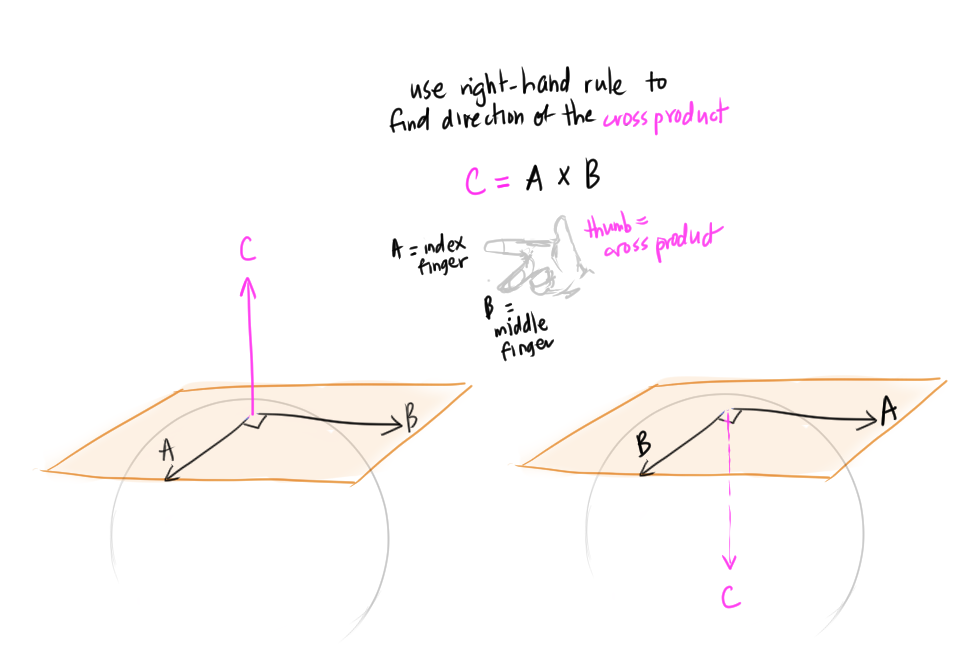 use right-hand rule to
find direction of the cross product
C = A x B
A = index
finger
thumb =
cross product
B =
middle
finger
C
A
B
B
A
C